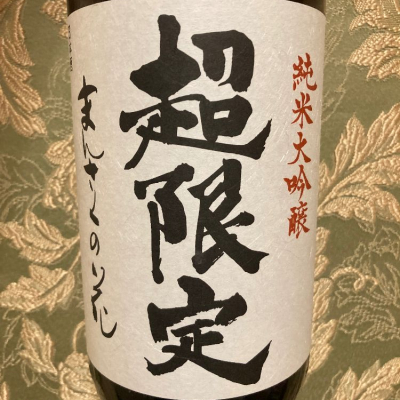 純米大吟醸
超限定
まんさくの花